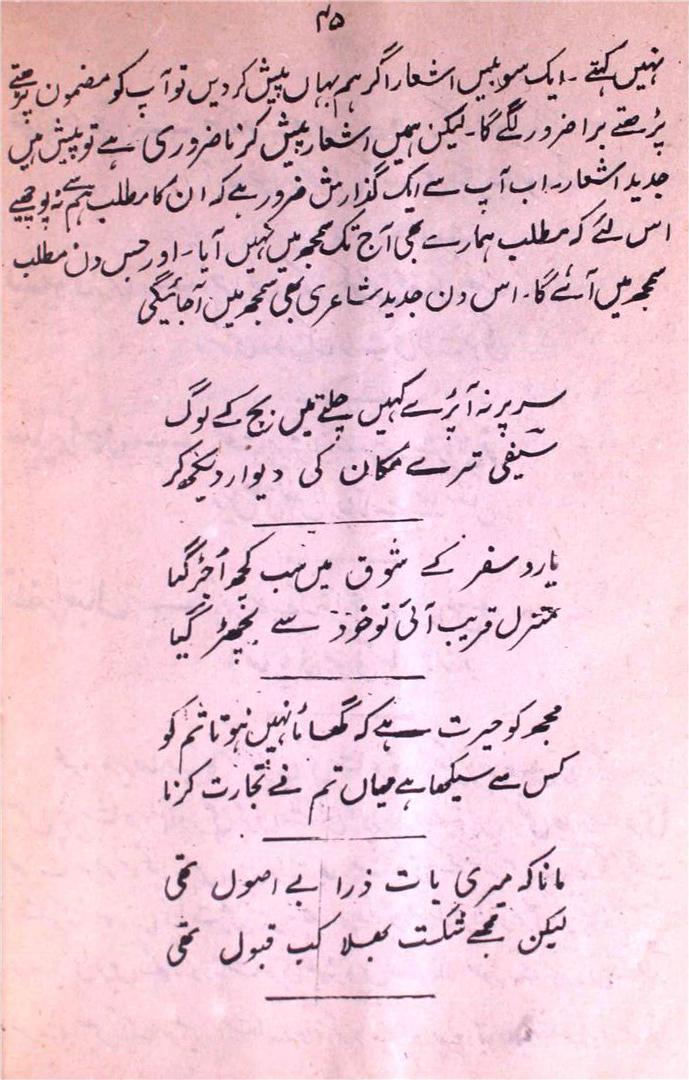 ۴۵
نہیں کہتے ۔ ایک سو بیس اشعار اگر ہم یہاں پیش کر دیں تو آپ کو مضمون پڑھتے
پڑھتے برا ضرور لگے گا۔ لیکن ہمیں اشعار پیش کرنا ضروری ہے تو پیش ہیں
جدید اشعار۔ اب آپ سے ایک گذارش ضرور ہے کہ ان کا مطلب ہم سے نہ پوچھیے
اس لئے کہ مطلب ہمارے بھی آج تک سمجھ میں نہیں آیا۔ اور جس دن مطلب
سمجھ میں آئے گا۔ اس دن جدید شاعری بھی سمجھ میں آجائیگی
سر پر نہ آ پڑے کہیں چلتے ہیں بچ کے لوگ
سیفی ترے مکان کی دیوار دیکھ کر
یارو سفر کے شوق میں سب کچھ اُجڑ گیا
منزل قریب آئی تو خود سے بچھڑ گیا
مجھ کو حیرت ہے کہ گھاٹا نہیں ہوتا تم کو
کس سے سیکھا ہے میاں تم نے تجارت کرنا
مانا کہ میری بات ذرا بے اصول تھی
لیکن مجھے شکت بھلا کب قبول تھی